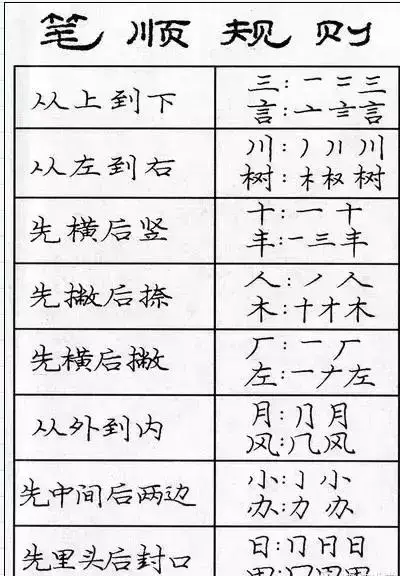 笔顺规则
从上到下
三：一 二 三
言：亠 言
从左到右
川：丿 川
树：木 权 树
先横后竖
十：一 十
丰：一 三 丰
先撇后捺
人：丿 人
木：十 才 木
先横后撇
厂：一 厂
左：一 ナ 左
从外到内
月：⺆ 月
风：几 风
先中间后两边
小：亅 小
办：力 办
先里头后封口
日：冂 日 日